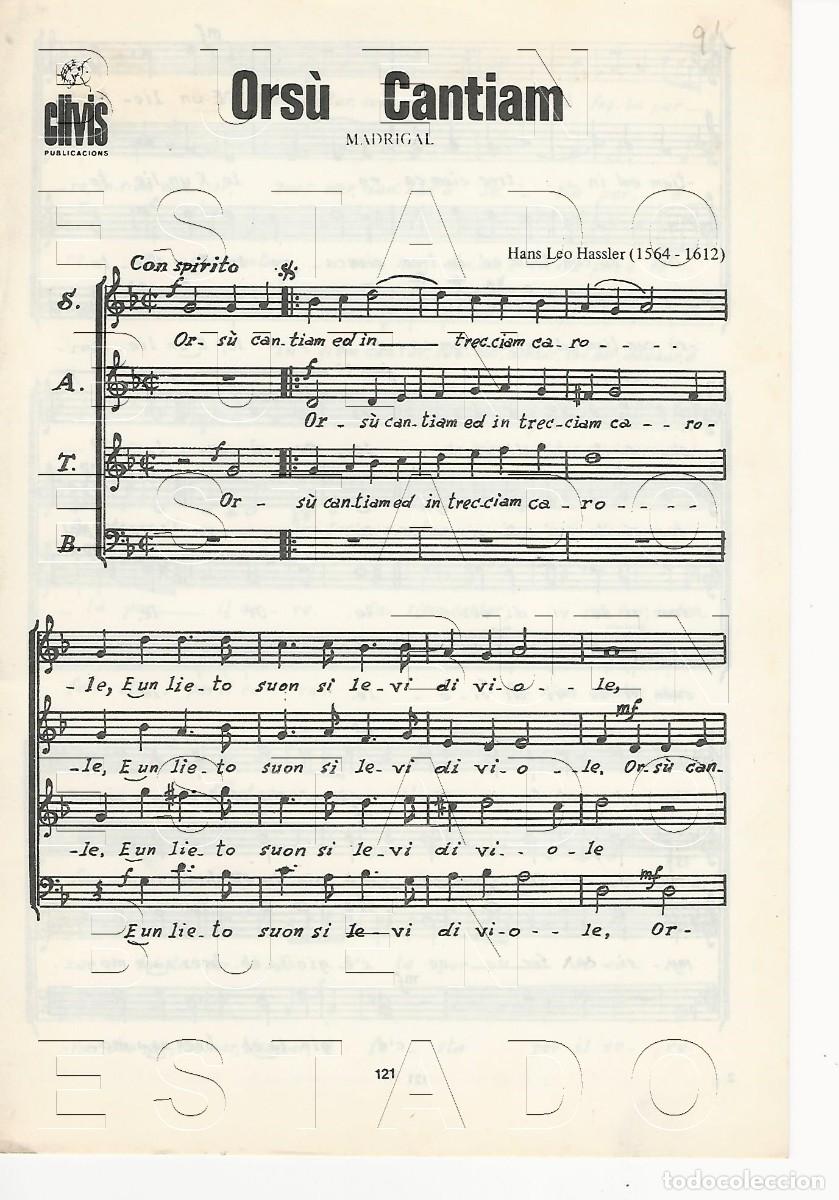 BUEN
clivis
PUBLICACIONS
Orsù Cantiam
MADRIGAL
ESTADO
Hans Leo Hassler (1564 - 1612)
Con spirito
f
S.
Or- sù can-tiam ed in trec-ciam ca-ro - -
BUEN
A.
f
Or - sù can-tiam ed in trec-ciam ca - - ro-
T.
f
Or - sù cantiam ed in trec-ciam ca - ro - - - -
ESTADO
B.
BUEN
-le, E un lie-to suon si le-vi di vi-o - le,
mf
-le, E un lie-to suon si le-vi di vi-o - le. Or-sù can-
ESTADO
-le, E un lie-to suon si le-vi di vi- - o-le
f
mf
E un lie-to suon si le-vi di vi-o- - le, Or-
BUEN
ESTADO
121
todocoleccion